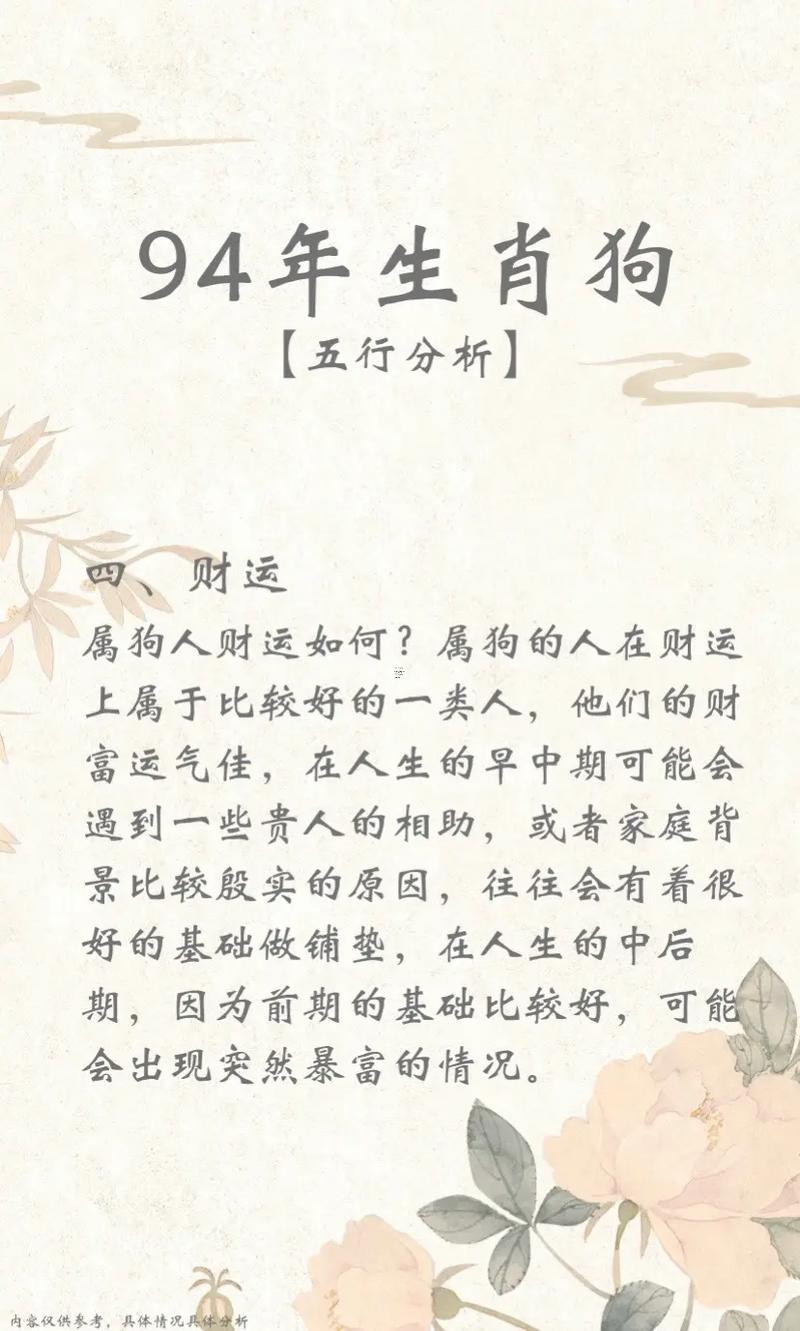 94年生肖狗
【五行分析】
四、财运
属狗人财运如何？属狗的人在财运
上属于比较好的一类人，他们的财
富运气佳，在人生的早中期可能会
遇到一些贵人的相助，或者家庭背
景比较殷实的原因，往往会有着很
好的基础做铺垫，在人生的中后
期，因为前期的基础比较好，可能
会出现突然暴富的情况。
内容仅供参考，具体情况具体分析